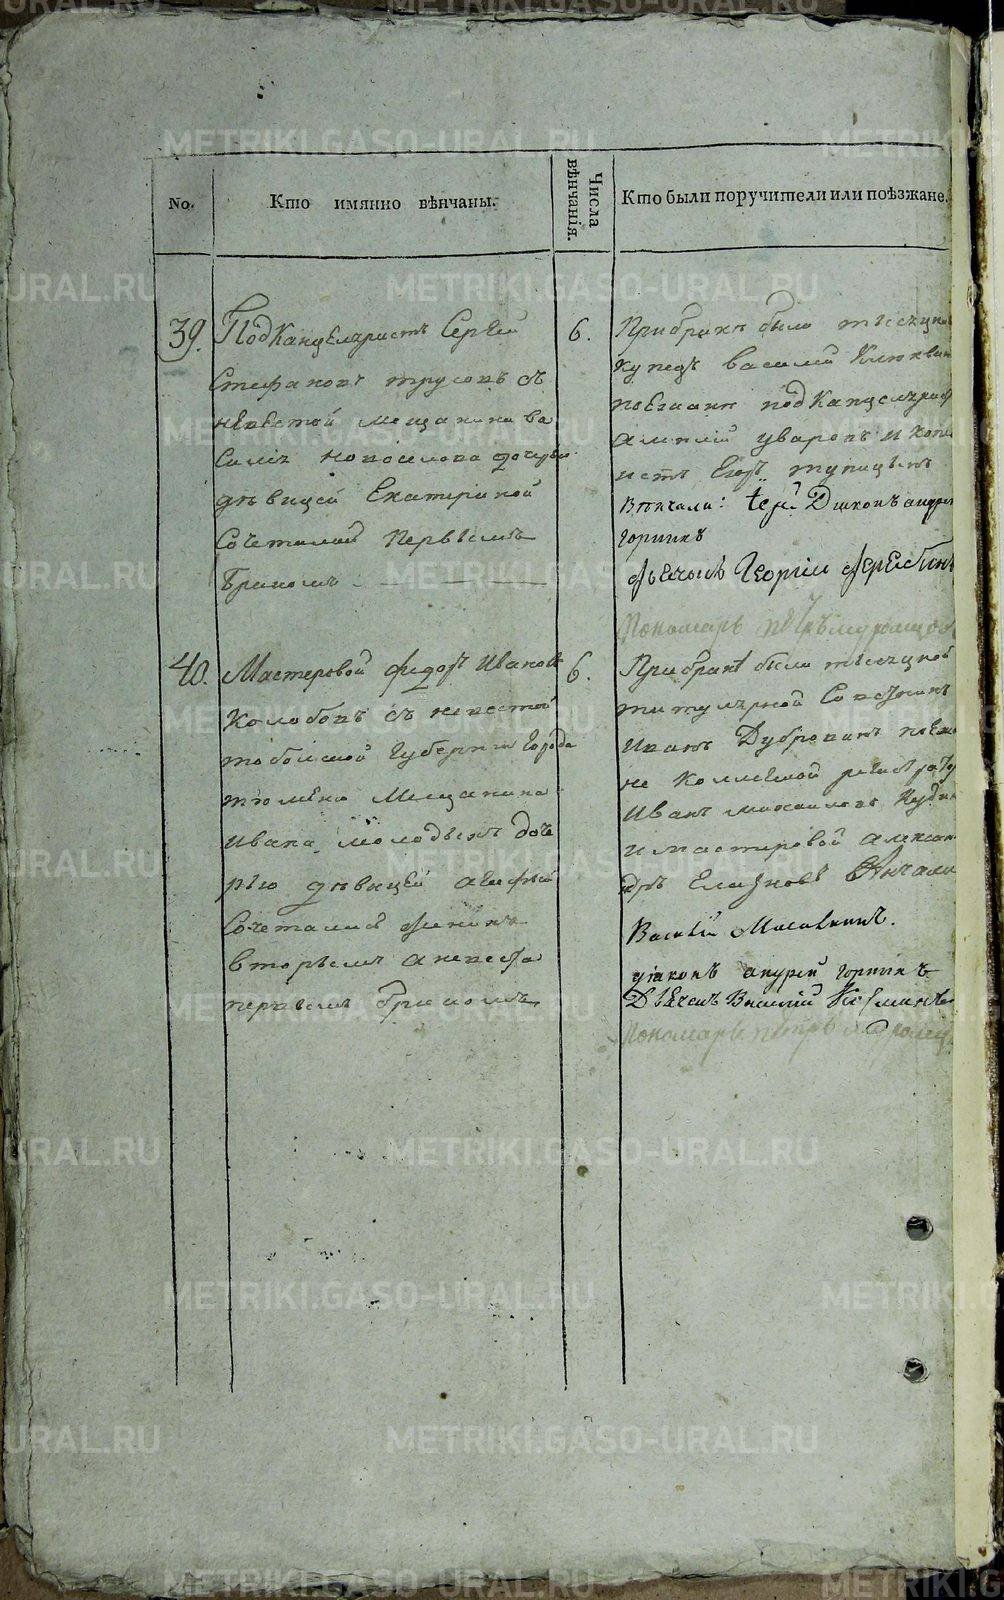 No.
Кто имянно вѣнчаны.
Числа вѣнчанія.
Кто были поручители или поѣзжане.
39.
Подканцеляристъ Сергей
Стефановъ трусовъ съ
невестой мещанина ва
силія новоселова дочерью
дѣвицей Екатериной
Сочетались первымъ
бракомъ
6.
При бракѣ были тысецкой
купецъ василей
поезжане подканцелярист
уваровъ и копе
истъ Егоръ тупицынъ
Вѣнчали: Диаконъ андрей
горнихъ
Георгии
Пономарь
40.
Мастеровой федоръ Ивановъ
Колобовъ съ невестой
тобольской губернии города
тюмени Мещанина
Ивана молодыхъ доче
рью девицей
Сочетались женихъ
вторымъ а невеста
первымъ бракомъ
6.
При бракѣ были тысецкой
титулярной Советникъ
Иванъ Дубровинъ поезжа
не коллежской регистратор
Иванъ михаиловъ
и мастеровой алексан
дръ Вѣнчали
Василій
диаконъ андрей горнихъ
Дьячекъ Василий
Пономарь петръ
METRIKI.GASO-URAL.RU